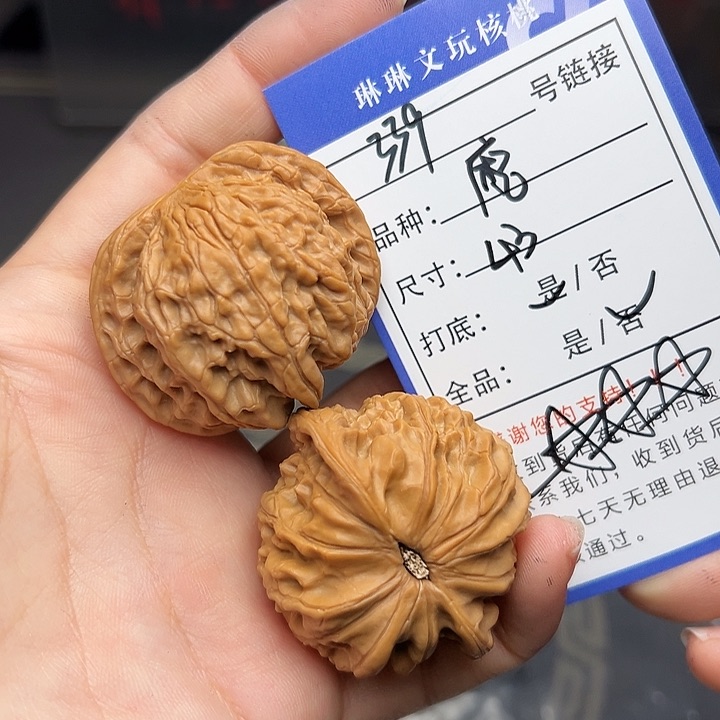 琳琳文玩核桃
339 号链接
品种：
尺寸：43
打底：是/否
全品：是/否
谢您的支持！！！
到货后
系我们，收到货后
七天无理由退
通过。